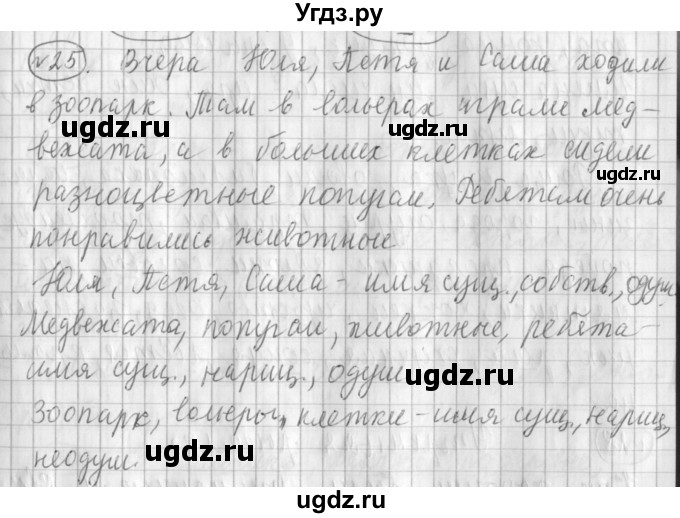 Угdz.ру
№25. Вчера Юля, Петя и Саша ходили
в зоопарк. Там в вольерах играли мед-
ugdz.ru ugdz.ru
вежата, а в больших клетках сидели
ugdz.ru
разноцветные попугаи. Ребятам очень
понравились животные.
Юля, Петя, Саша - имя сущ., собств., одуш.
Медвежата, попугаи, животные, ребята -
имя сущ., нариц., одуш.
ugdz.ru
Зоопарк, вольеры, клетки - имя сущ., нариц.,
неодуш.
ugdz.ru ugdz.ru
ugdz.ru